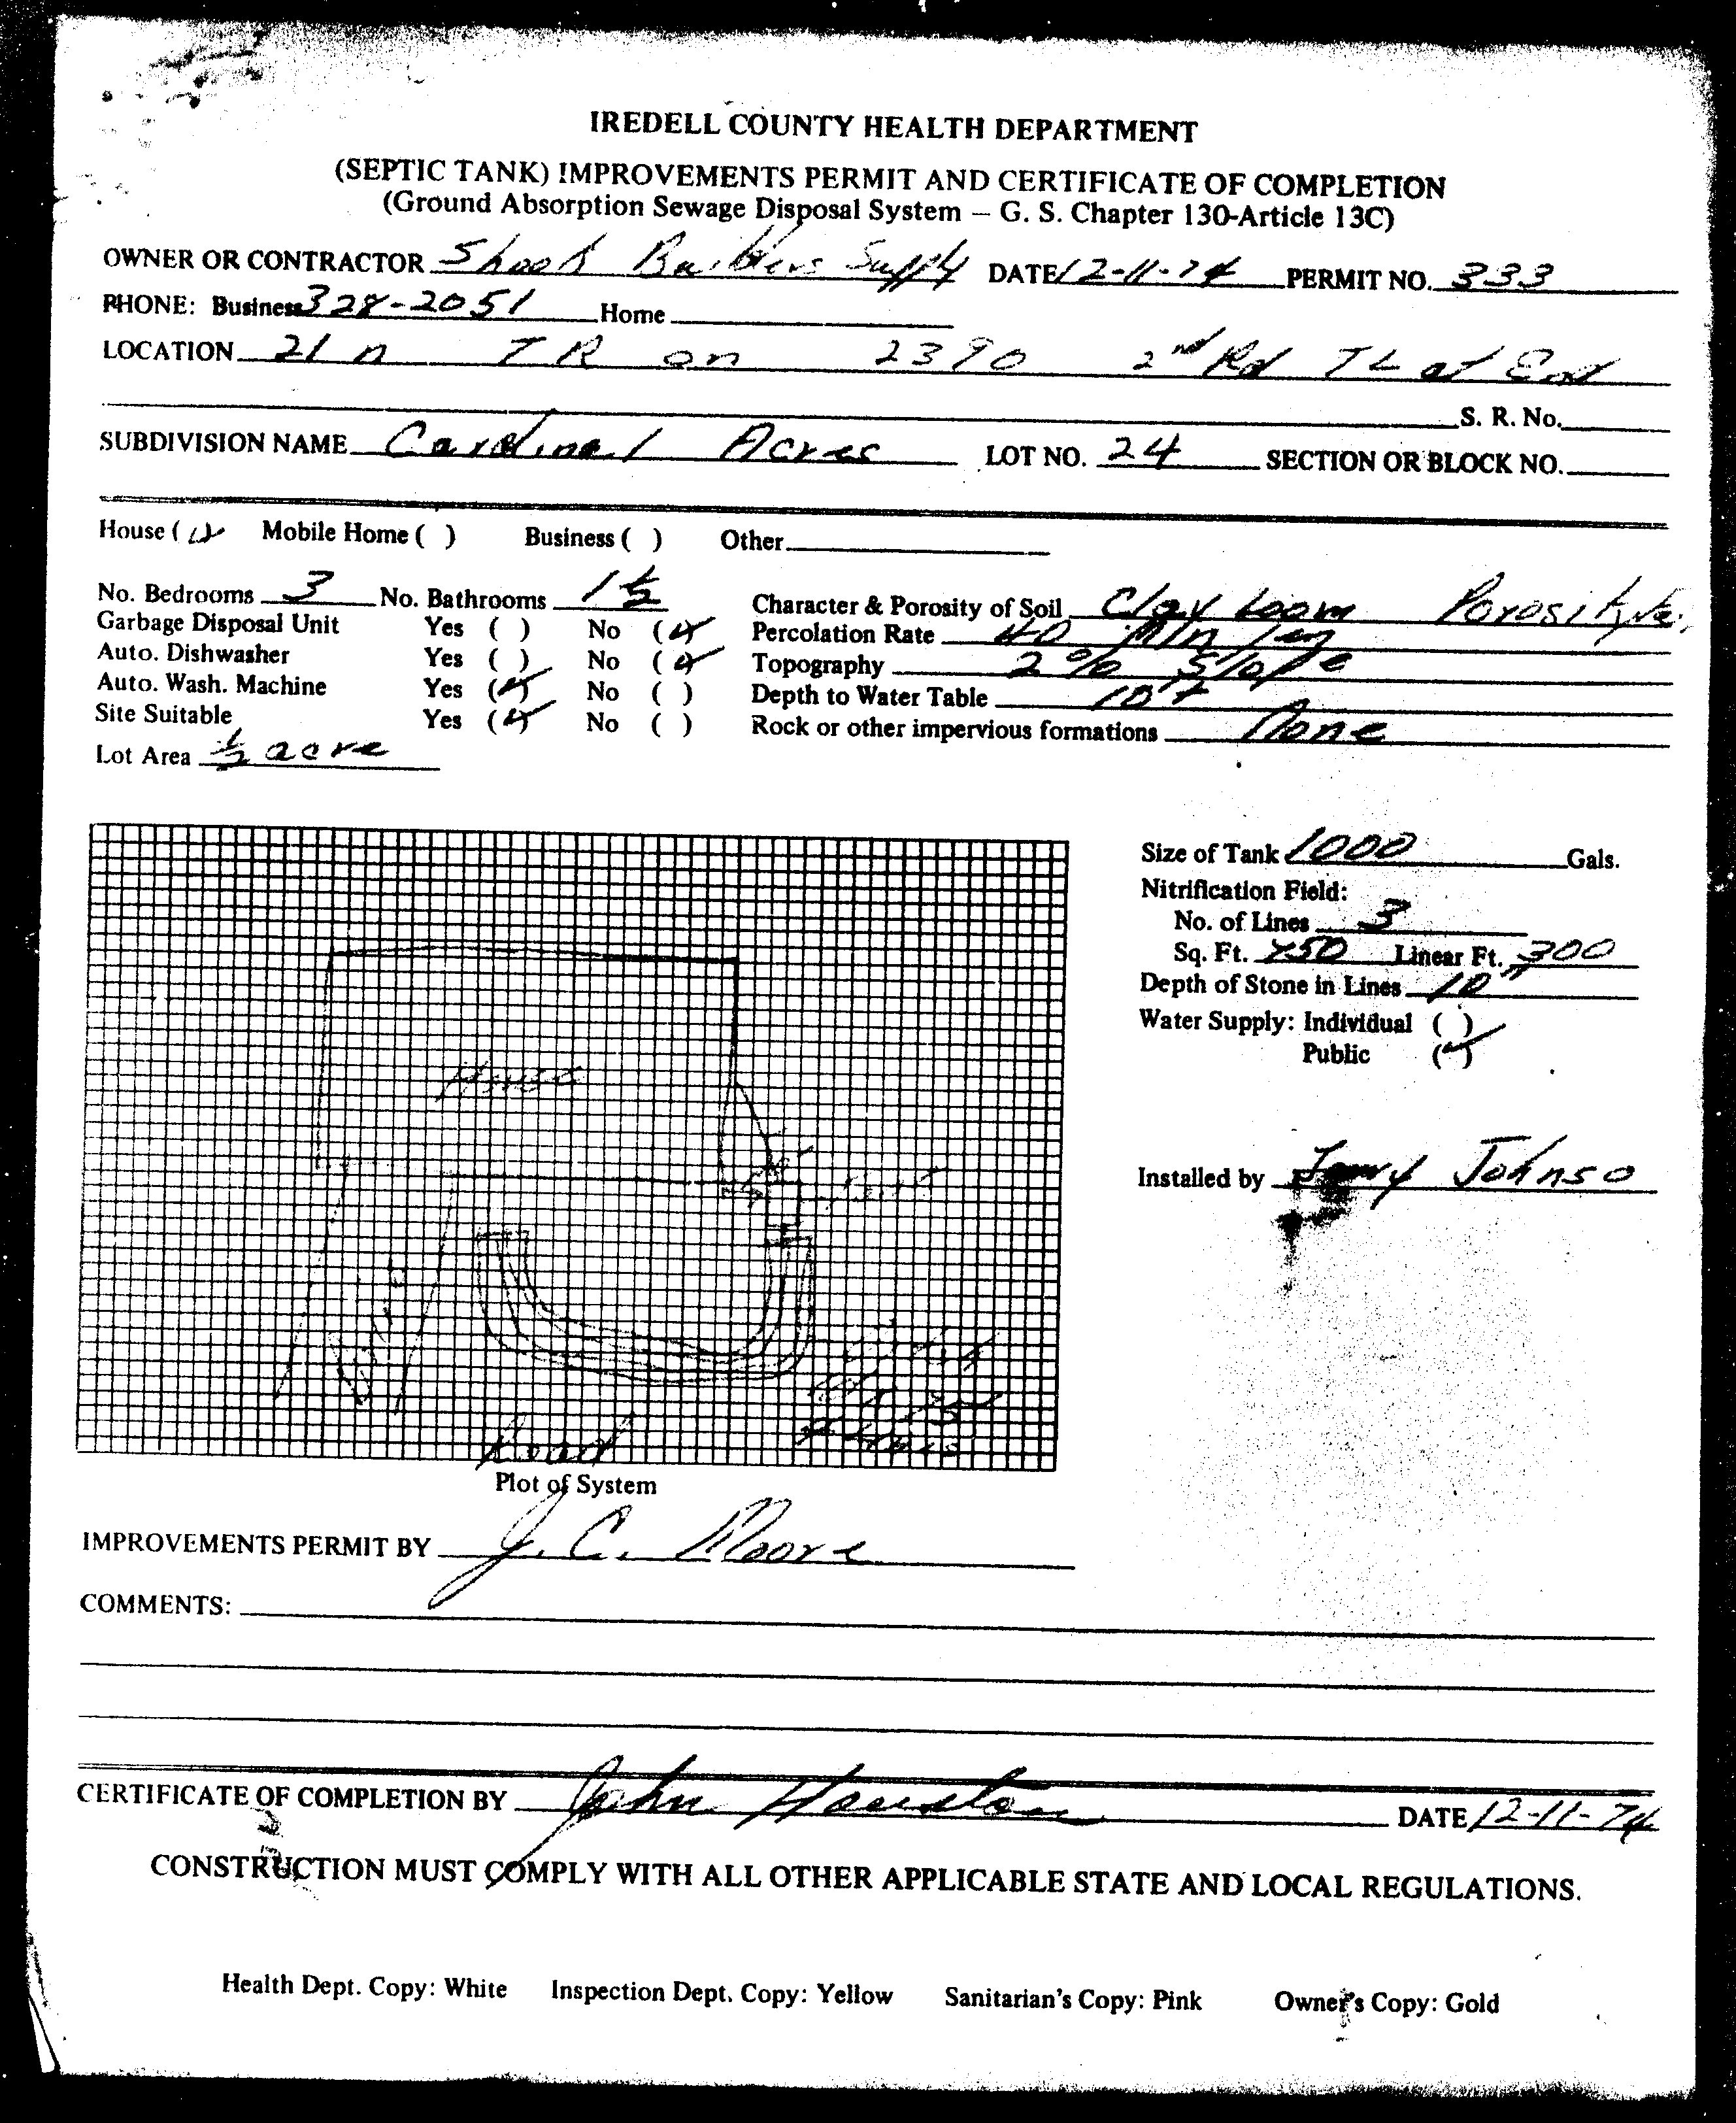 IREDELL COUNTY HEALTH DEPARTMENT
(SEPTIC TANK) IMPROVEMENTS PERMIT AND CERTIFICATE OF COMPLETION
(Ground Absorption Sewage Disposal System – G. S. Chapter 130-Article 13C)
OWNER OR CONTRACTOR Shook Builders Supply DATE 12-11-74 PERMIT NO. 333
PHONE: Business 328-2051 Home
LOCATION 21 n TR on 2390 2nd Rd TL at End
S. R. No.
SUBDIVISION NAME Cardinal Acres LOT NO. 24 SECTION OR BLOCK NO.
House (✓) Mobile Home ( ) Business ( ) Other
No. Bedrooms 3 No. Bathrooms 1½ Character & Porosity of Soil Clay Loom Porosity
Garbage Disposal Unit Yes ( ) No (✓) Percolation Rate 40 Min/
Auto. Dishwasher Yes ( ) No (✓) Topography 2% Slope
Auto. Wash. Machine Yes (✓) No ( ) Depth to Water Table 10'+
Site Suitable Yes (✓) No ( ) Rock or other impervious formations None
Lot Area ½ acre
Size of Tank 1000 Gals.
Nitrification Field:
No. of Lines 3
Sq. Ft. 750 Linear Ft. 300
Depth of Stone in Lines 10"
Water Supply: Individual ( )
Public (✓)
House
Installed by Johnso
Road
Plot of System
IMPROVEMENTS PERMIT BY J. C. Moore
COMMENTS:
CERTIFICATE OF COMPLETION BY John Houston DATE 12-11-74
CONSTRUCTION MUST COMPLY WITH ALL OTHER APPLICABLE STATE AND LOCAL REGULATIONS.
Health Dept. Copy: White Inspection Dept. Copy: Yellow Sanitarian's Copy: Pink Owner's Copy: Gold